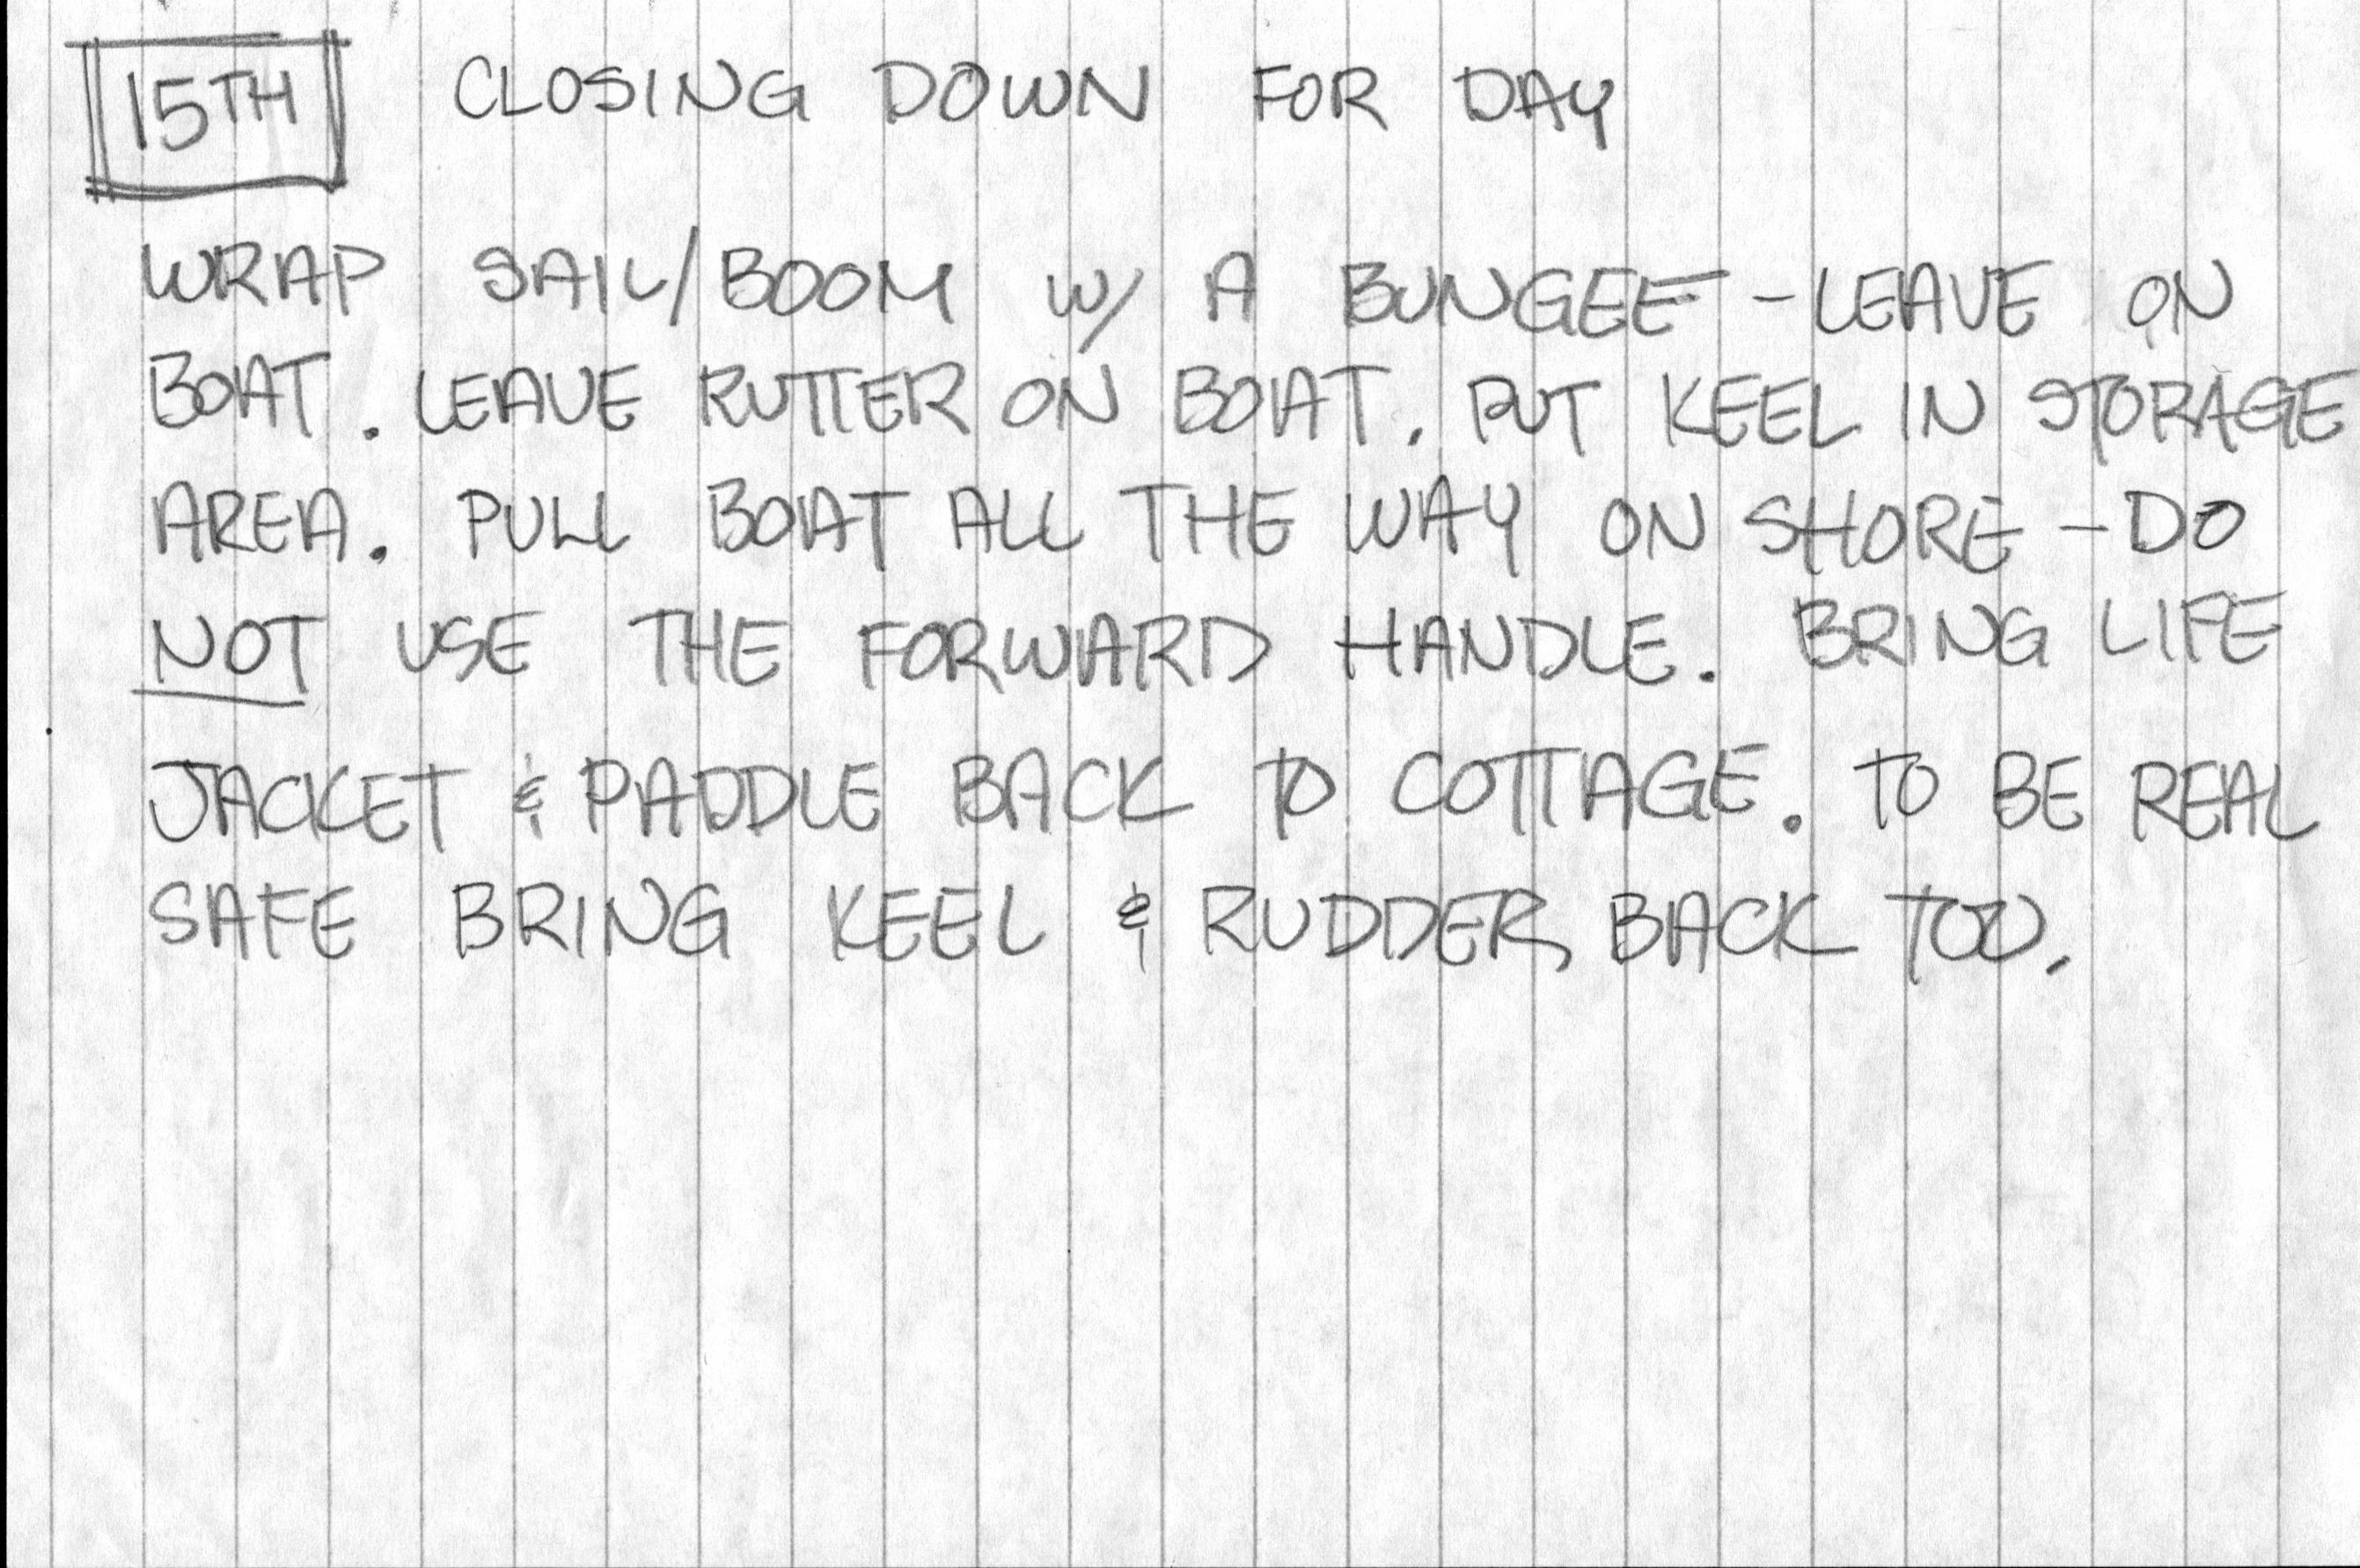 15TH CLOSING DOWN FOR DAY
WRAP SAIL/BOOM W/ A BUNGEE - LEAVE ON
BOAT. LEAVE RUTTER ON BOAT. PUT KEEL IN STORAGE
AREA. PULL BOAT ALL THE WAY ON SHORE - DO
NOT USE THE FORWARD HANDLE. BRING LIFE
JACKET & PADDLE BACK TO COTTAGE. TO BE REAL
SAFE BRING KEEL & RUDDER BACK TOO.